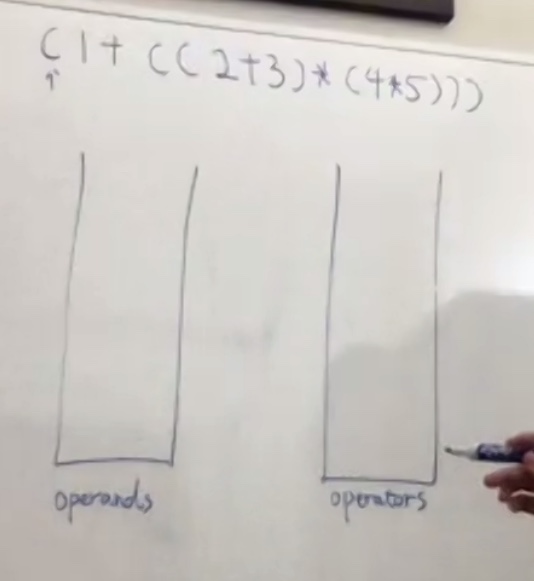 (1+((2+3)*(4*5)))
operands
operators